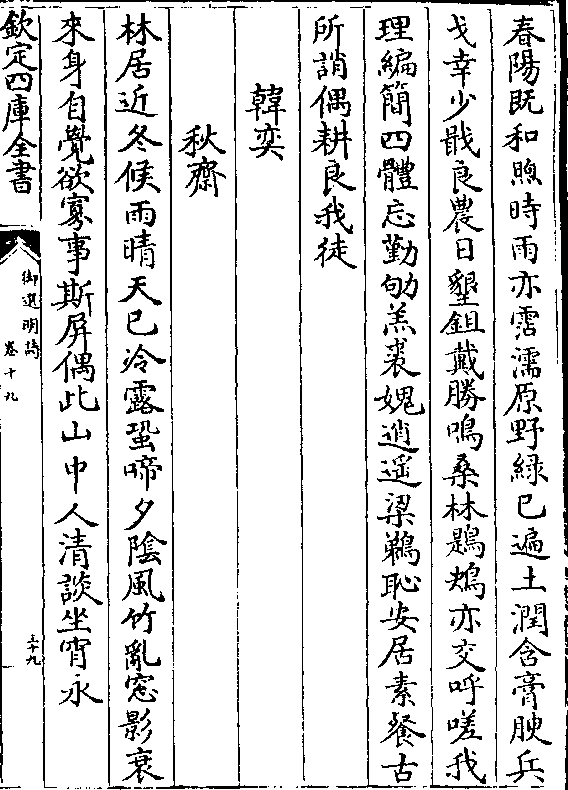 春陽既和煦時雨亦霑濡原野緑已遍土潤含膏腴兵
戈幸少戢良農日墾鉏戴勝鳴桑林鶗鴂亦交呼嗟我
理編簡四體忘勤劬羔裘媿逍遥梁鵜恥安居素餐古
所誚偶耕良我徒
韓奕
秋齋
林居近冬候雨晴天已冷露蛩啼夕陰風竹亂窓影衰
來身自覺欲寡事斯屏偶此山中人清談坐宵永
欽定四庫全書
御選明詩
卷十九
三十九